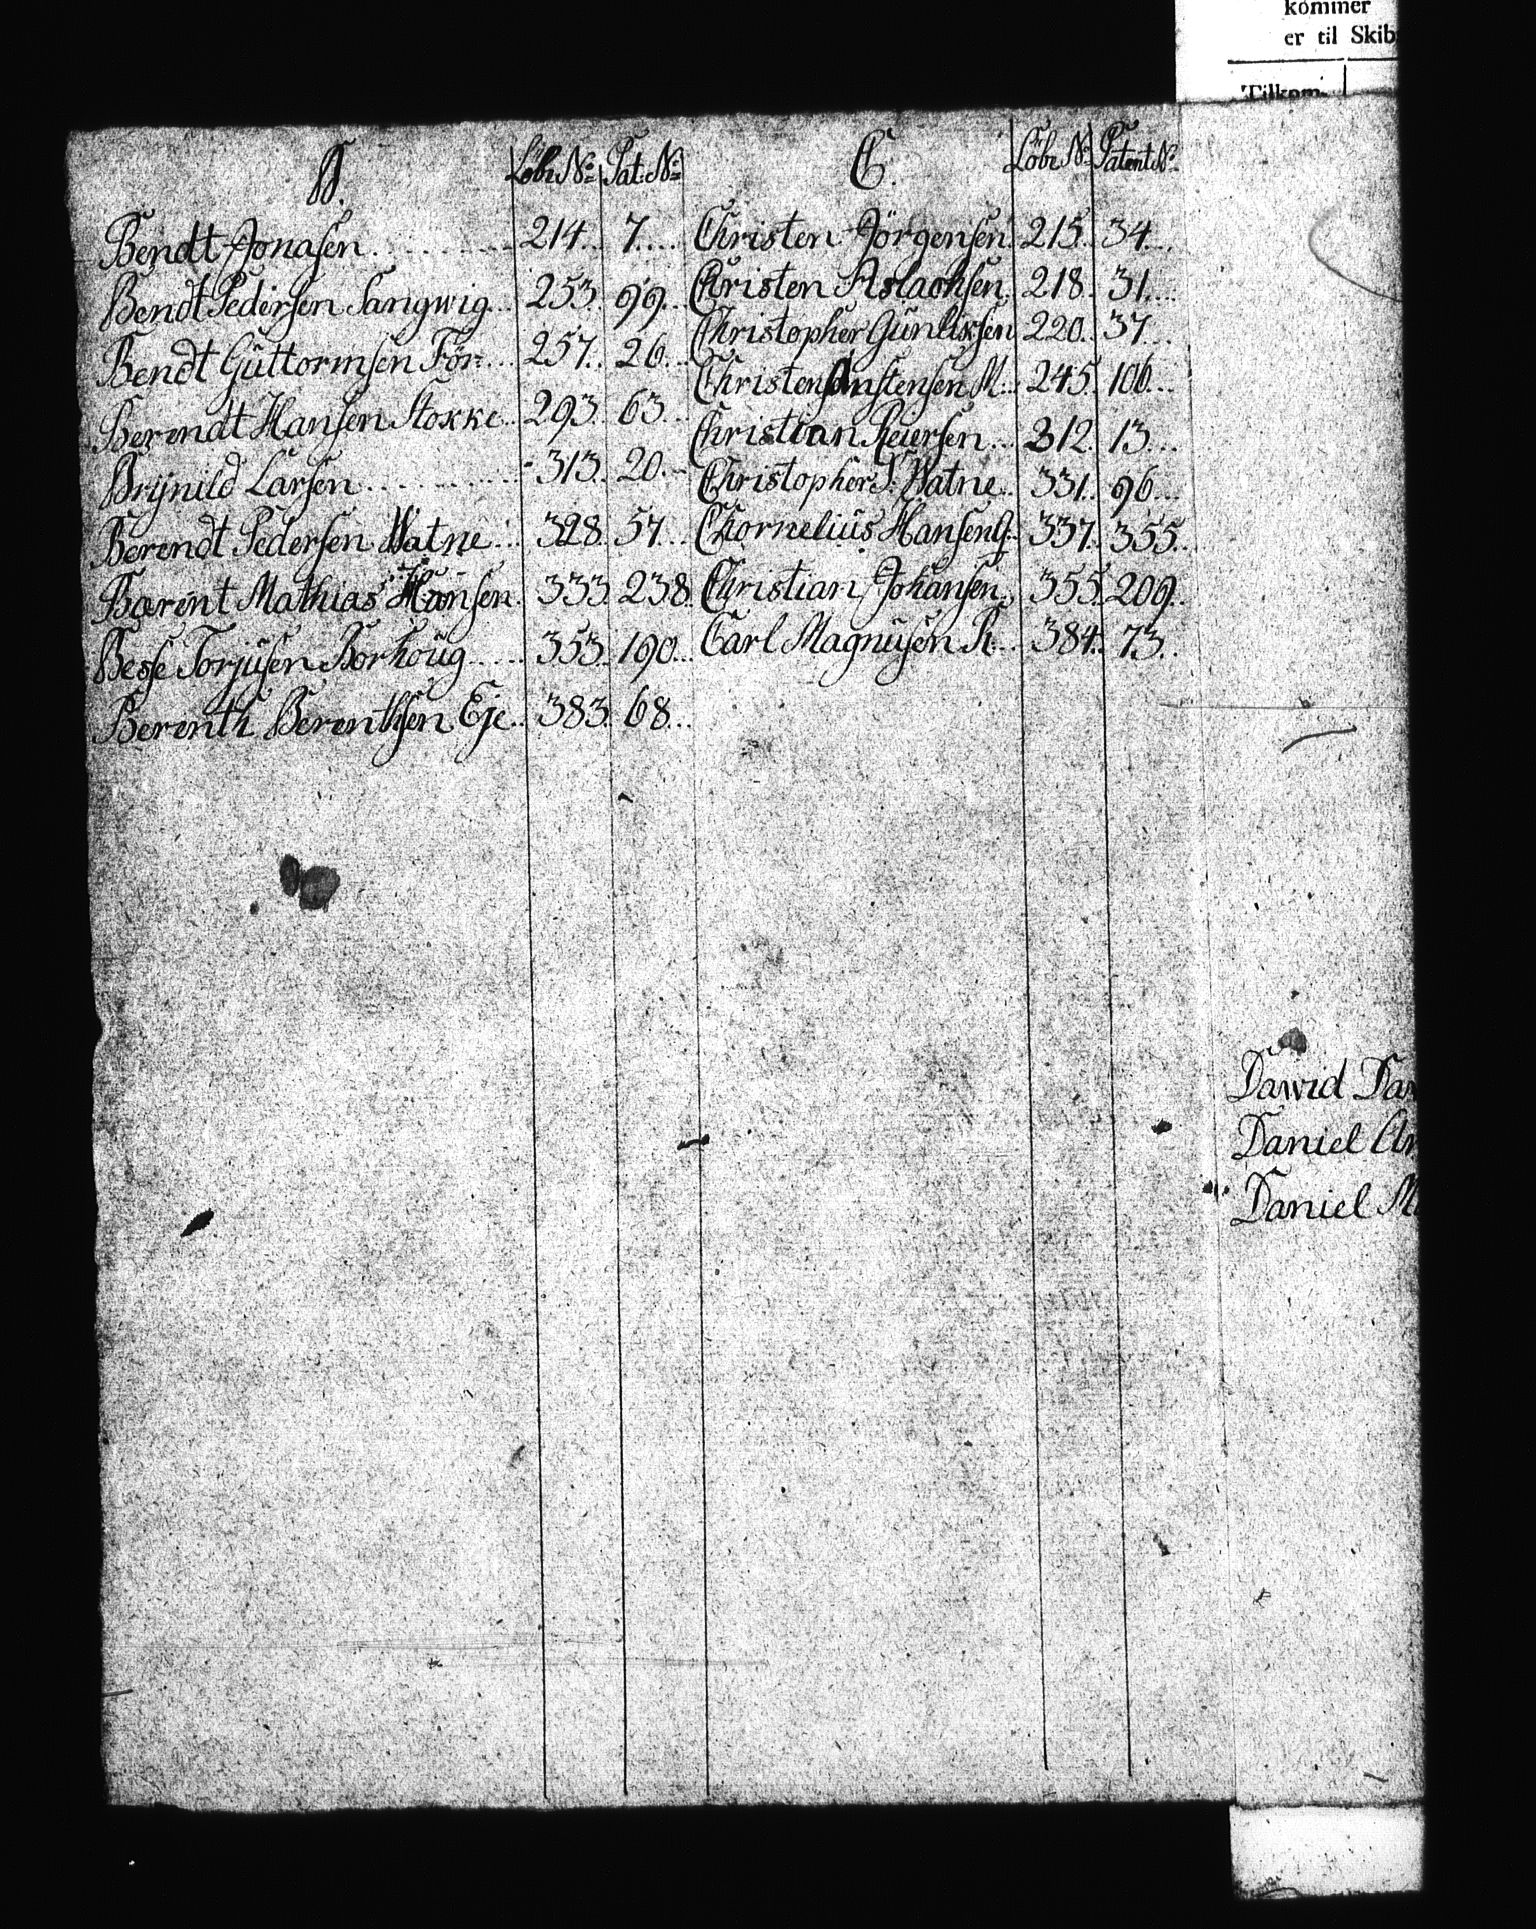 kommer
er til Skib
Tilkom-
B. Löbe No Pat. No
Bendt Jonasen 214. 7.
Bendt Pedersen Sangwig 253. 99.
Bendt Guttormsen För 257. 26.
Berendt Hansen Stokke 293. 63.
Brÿnild Larsen 313. 20.
Berendt Pedersen Watne 328. 57.
Barent Mathias Hansen 333. 238.
Besse Torjusen Borhoug 353. 190.
Berenth Berenthsen Eje 383. 68.
C. Löbe No Patent No
Christen Jörgensen 215. 34.
Christen Aslachsen 218. 31.
Christopher Gunlixsen 220. 37.
Christen Omstensen M. 245. 106.
Christian Reiersen 312. 13.
Christopher P. Watne 331. 96.
Chornelius Hansen G. 337. 355.
Christian Johansen 355. 209.
Carl Magnusen R. 384. 73.
Dawid Dan
Daniel
Daniel